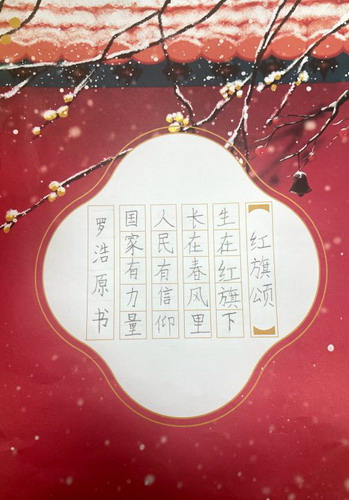 红旗颂
生在红旗下
长在春风里
人民有信仰
国家有力量
罗浩原书